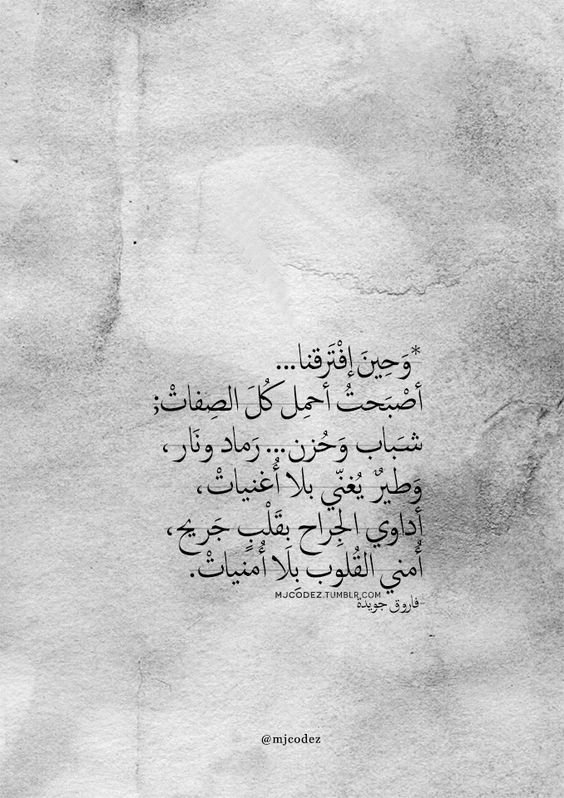 *وَحِينَ إفْتَرقنا...
أصْبَحتُ أحمِل كُلَ الصِفاتْ;
شَباب وَحُزن... رَماد ونَار ،
وَطيرٌ يُغنّي بلا أُغنياتْ،
أداوي الجِراح بقَلْبٍ جَريح،
أُمني القُلوب بِلَا أُمنياتْ.
MJCODEZ.TUMBLR.COM
-فاروق جويدة
@mjcodez